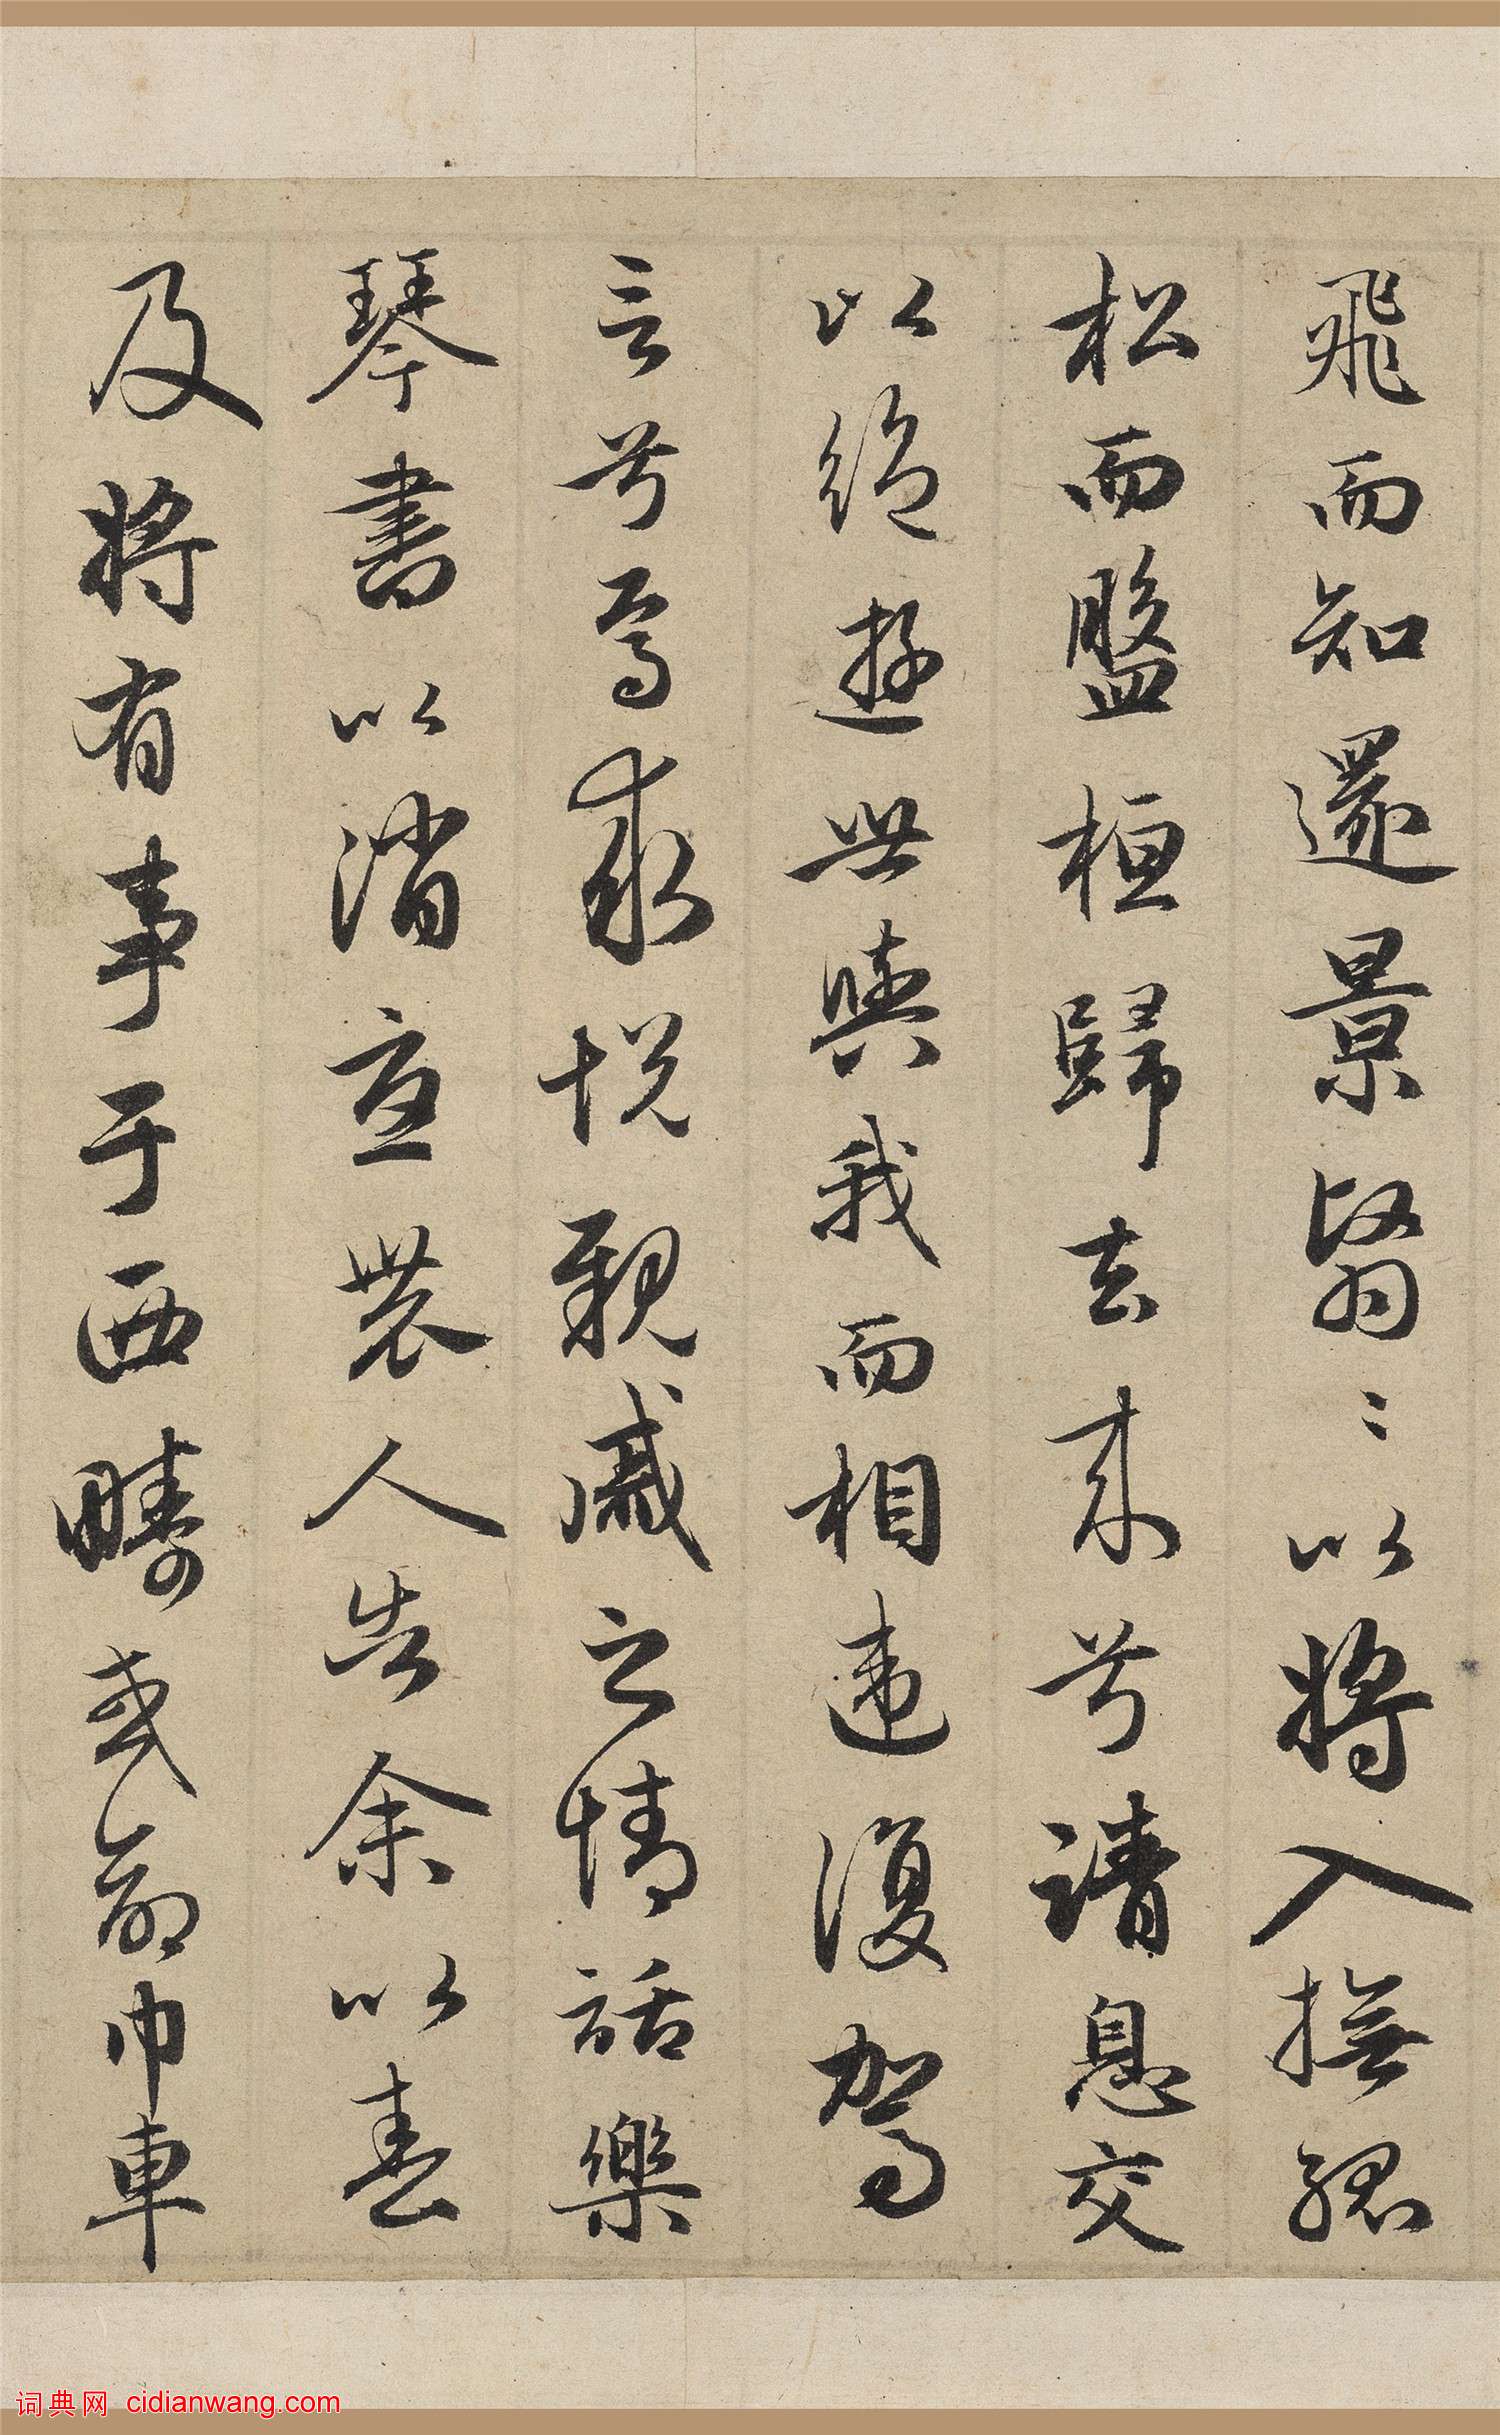 飛而知還景翳〻以將入撫孤
松而盤桓歸去來兮請息交
以絕遊世與我而相違復駕
言兮焉求悅親戚之情話樂
琴書以消憂農人告余以春
及將有事于西疇或命巾車
词典网 cidianwang.com